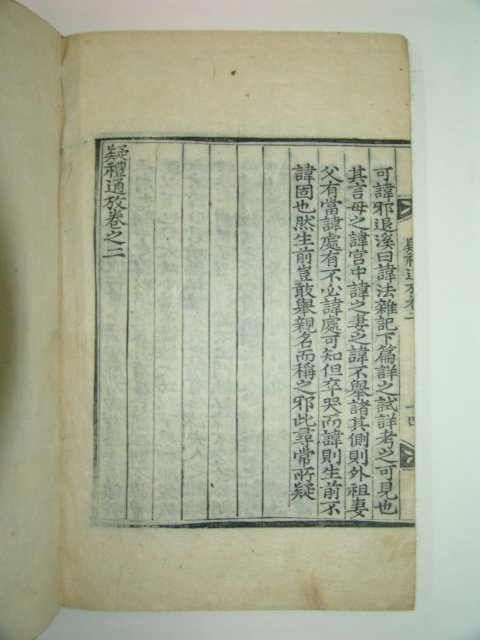 疑禮通攷卷二
十四
可諱邪退溪曰諱法雜記下篇詳之試詳考之可見也
其言母之諱宫中諱之妻之諱不舉諸其側則外祖妻
父有當諱處有不必諱處可知但卒哭而諱則生前不
諱固也然生前豈敢舉親名而稱之邪此尋常所疑
疑禮通攷卷之二